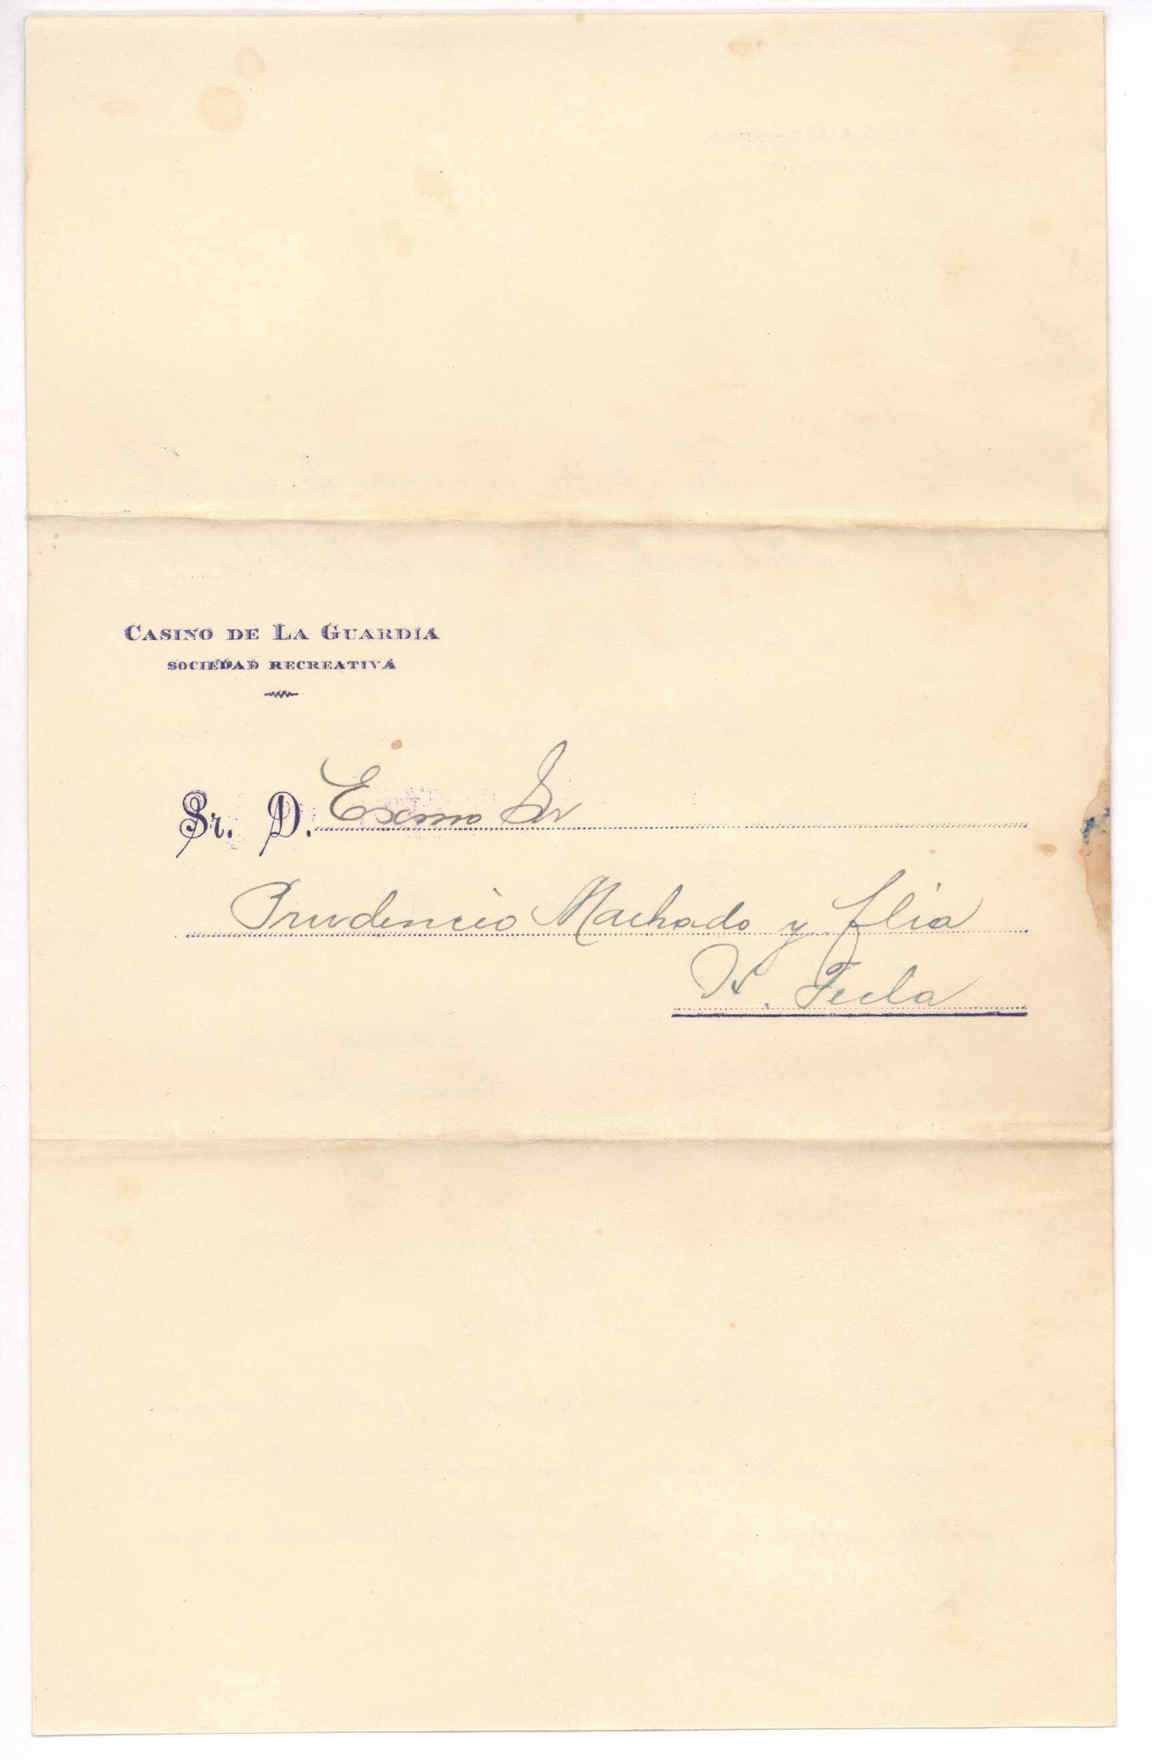 CASINO DE LA GUARDIA
SOCIEDAD RECREATIVA
Sr. D. Exmo Sr
Prudencio Machado y flia
Tecla